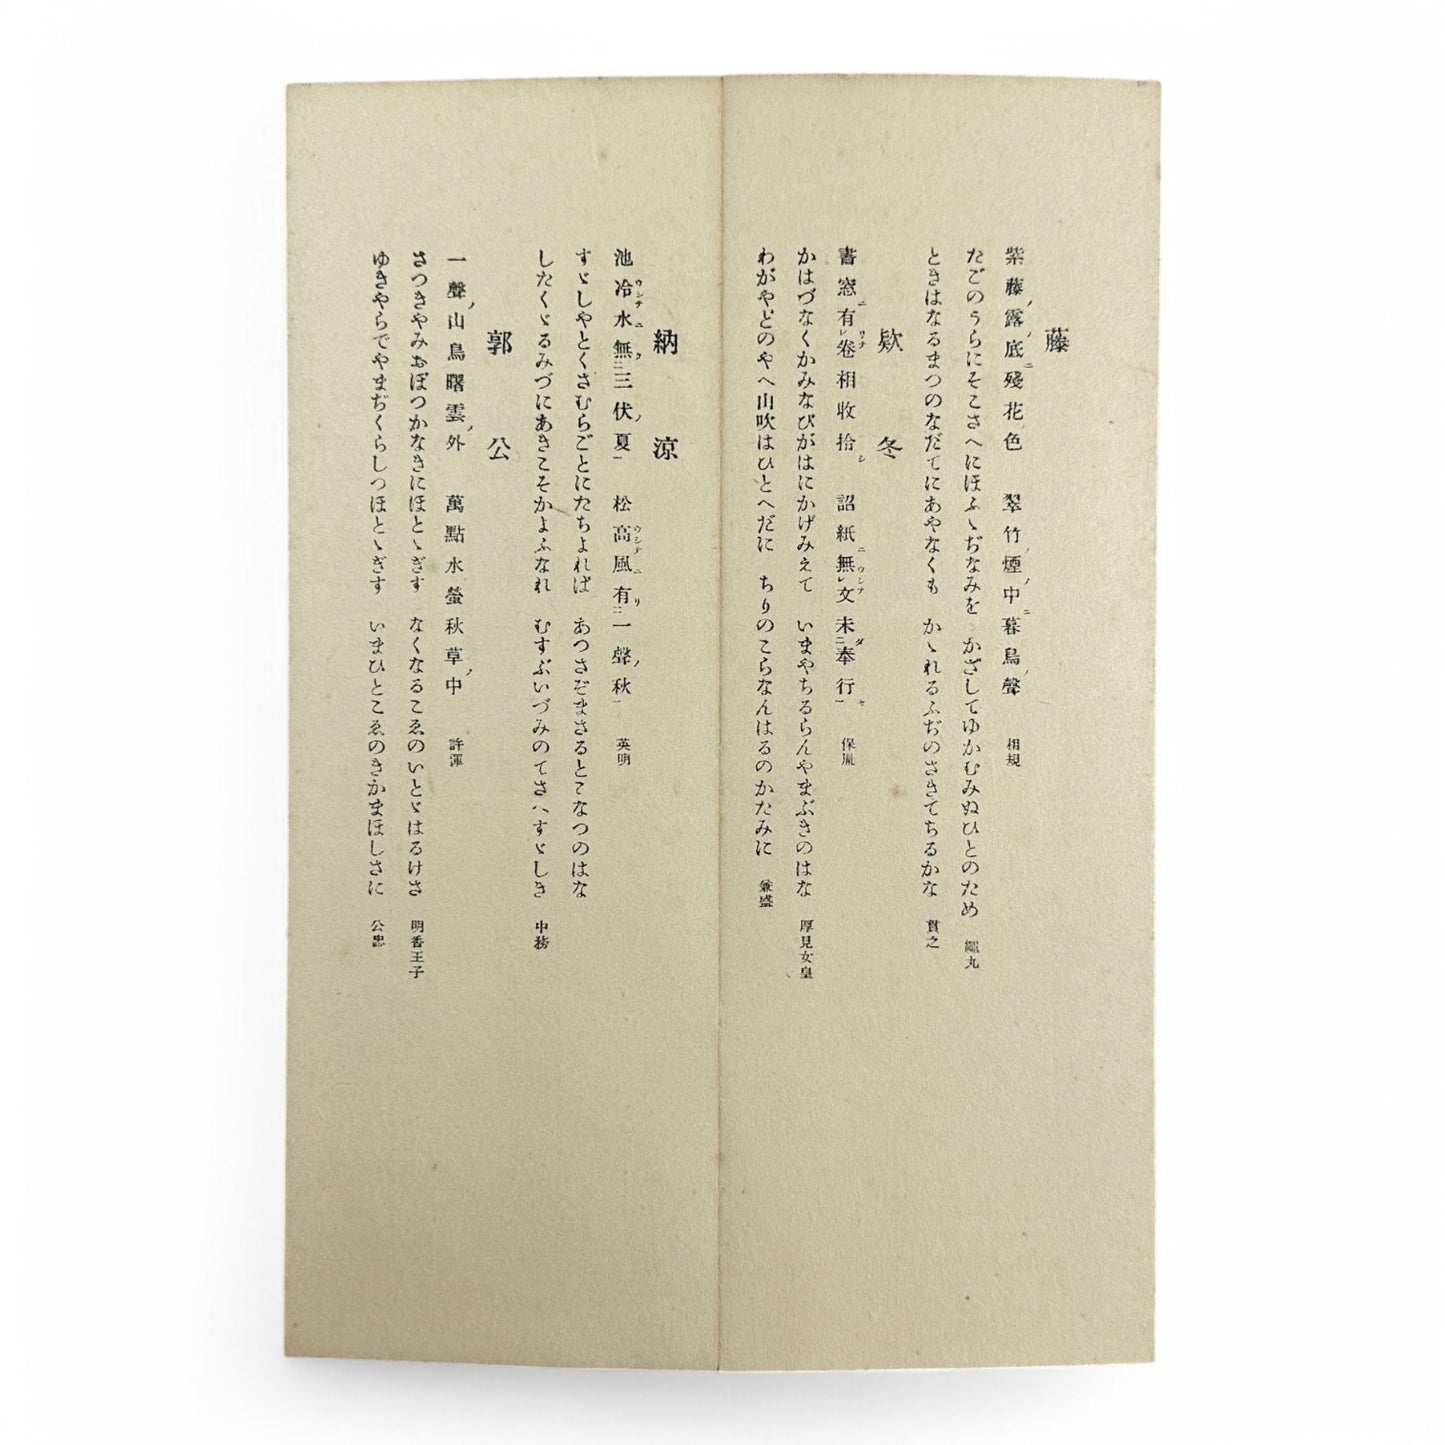 藤
紫藤ノ露ノ底ニ殘花ノ色　翠竹ノ煙ノ中ニ暮鳥ノ聲　相規
たごのうらにそこさへにほふゝぢなみを　かざしてゆかむみぬひとのため　繩丸
ときはなるまつのなだてにあやなくも　かゝれるふぢのさきてちるかな　貫之
欵冬
書窓ニ有レリナ卷相收拾シ　詔紙ニ無レウシナ文未ダ二奉行一セ　保胤
かはづなくかみなびがはにかげみえて　いまやちるらんやまぶきのはな　厚見女皇
わがやどのやへ山吹はひとへだに　ちりのこらなんはるのかたみに　兼盛
納涼
池冷ウシテ水ニ無ク二三伏ノ夏一　松高ウシテ風ニ有リ二一聲ノ秋一　英明
すゞしやとくさむらごとにたちよれば　あつさぞまさるとこなつのはな
したくゞるみづにあきこそかよふなれ　むすぶいづみのてさへすゞしき　中務
郭公
一聲ノ山鳥曙雲ノ外　萬點水螢秋草ノ中　許渾
さつきやみおぼつかなきにほとゝぎす　なくなるこゑのいとゞはるけさ　明香王子
ゆきやらでやまぢくらしつほとゝぎす　いまひとこゑのきかまほしさに　公忠